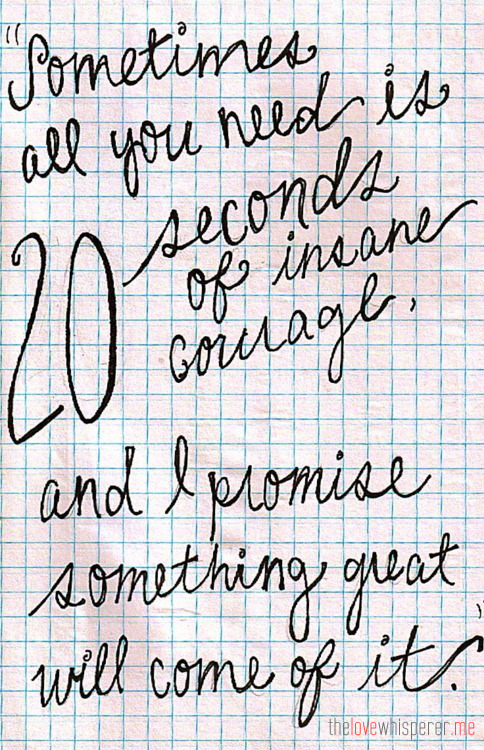 "Sometimes
all you need is
20 seconds
of insane
courage,
and I promise
something great
will come of it."
thelovewhisperer.me